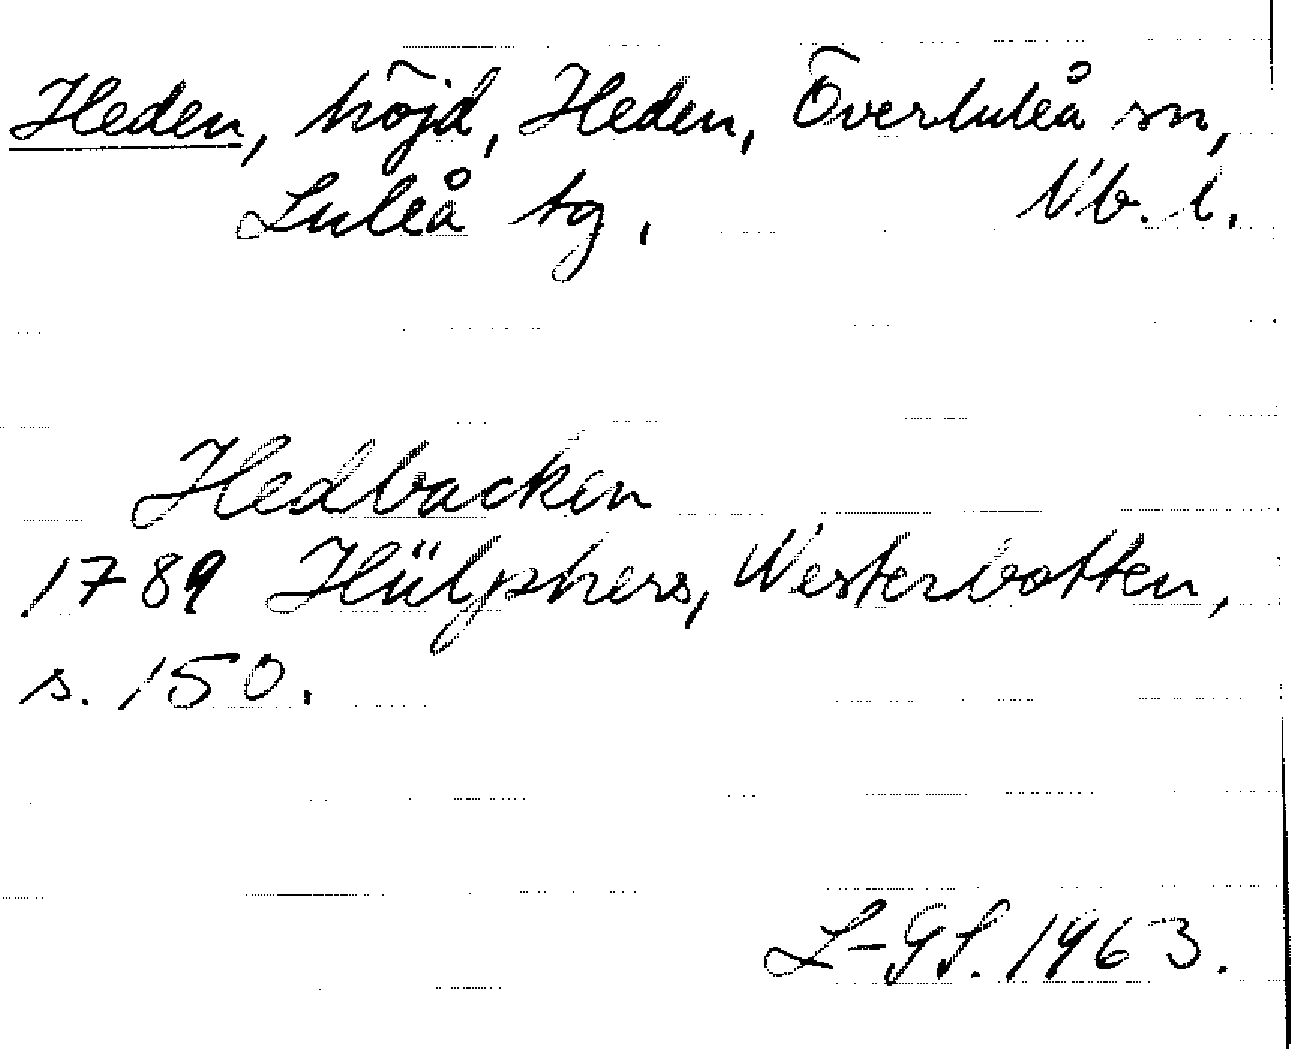 Heden, höjd, Heden, Överluleå sn,
Luleå tg, Nb. l.
Hedbacken
1789 Hülphers, Westerbotten,
s. 150.
L-GS. 1963.